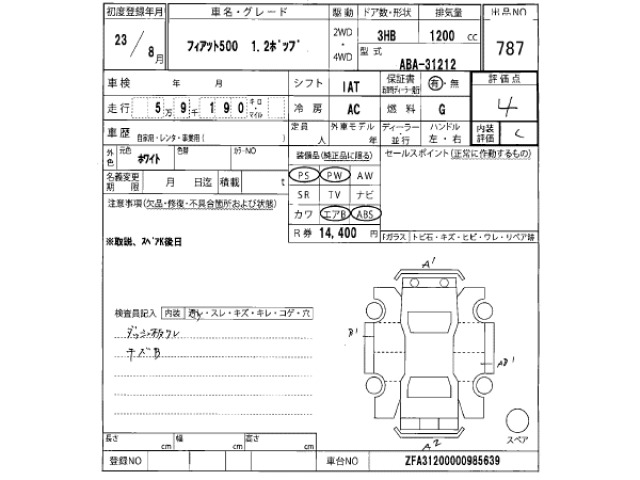 初度登録年月 車名・グレード 駆動 ドア数・形状 排気量 出品NO
23/8月 フィアット500 1.2ポップ 2WD・4WD 3HB 1200 cc 787
型式 ABA-31212
車検 年 月 シフト IAT 保証書 有・無 評価点
走行 5万9千190 キロ マイル 冷房 AC 燃料 G 4
車歴 自家用・レンタ・事業用( ) 定員 人 外車モデル 年 ディーラー・並行 ハンドル 左・右 内装評価 C
外色 元色 ホワイト 色替 カラーNO 装備品(純正品に限る) セールスポイント(正常に作動するもの)
名義変更期限 月 日迄 積載 t PS PW AW
注意事項(欠品・修復・不具合箇所および状態) SR TV ナビ
カワ エアB ABS
R券 14,400 円
Fガラス トビ石・キズ・ヒビ・ワレ・リペア跡
※取説、スペアK後日
A1
検査員記入 内装 汚れ・スレ・キズ・キレ・コゲ・穴
ダッシュ板ワレ
キズB
B1
AB1
A2
スペア
長さ cm 幅 cm 高さ cm
登録NO 車台NO ZFA31200000985639